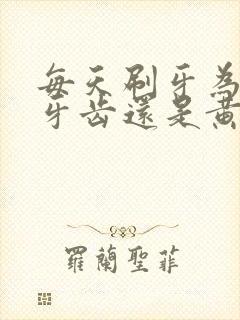 每天刷牙為
牙齿還是黄
羅蘭聖菲